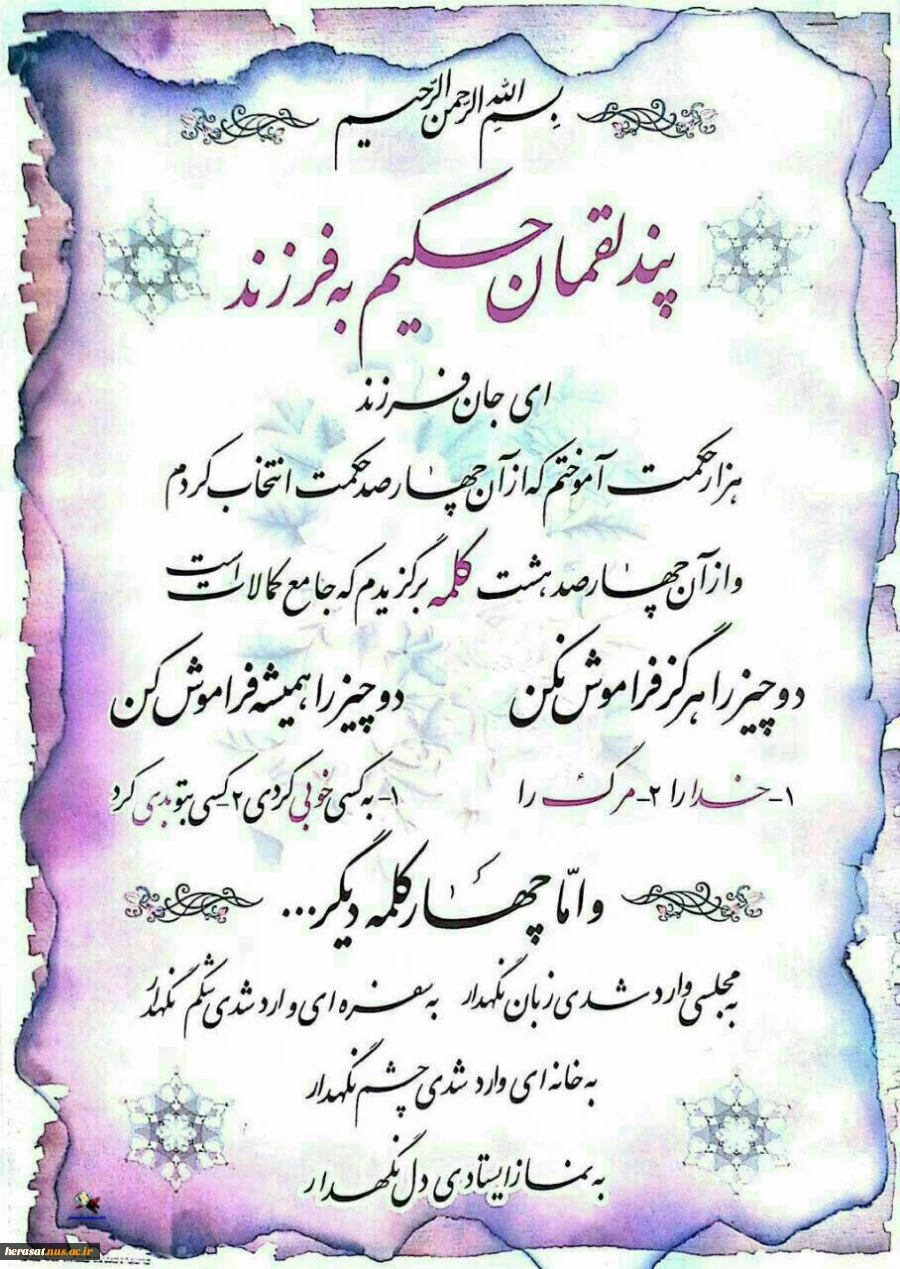 بِسمِ اللهِ الرَّحمنِ الرَّحیم
پند لقمان حکیم به فرزند
ای جان فرزند
هزار حکمت آموختم که از آن چهارصد حکمت انتخاب کردم
و از آن چهارصد، هشت کلمه برگزیدم که جامع کمالات است
دو چیز را هرگز فراموش نکن
۱- خدا را ۲- مرگ را
دو چیز را همیشه فراموش کن
۱- به کسی خوبی کردی ۲- کسی بتو بدی کرد
و امّا چهار کلمه دیگر...
به مجلسی وارد شدی زبان نگهدار به سفره ای وارد شدی شکم نگهدار
به خانه ای وارد شدی چشم نگهدار
به نماز ایستادی دل نگهدار
herasat.nus.ac.ir